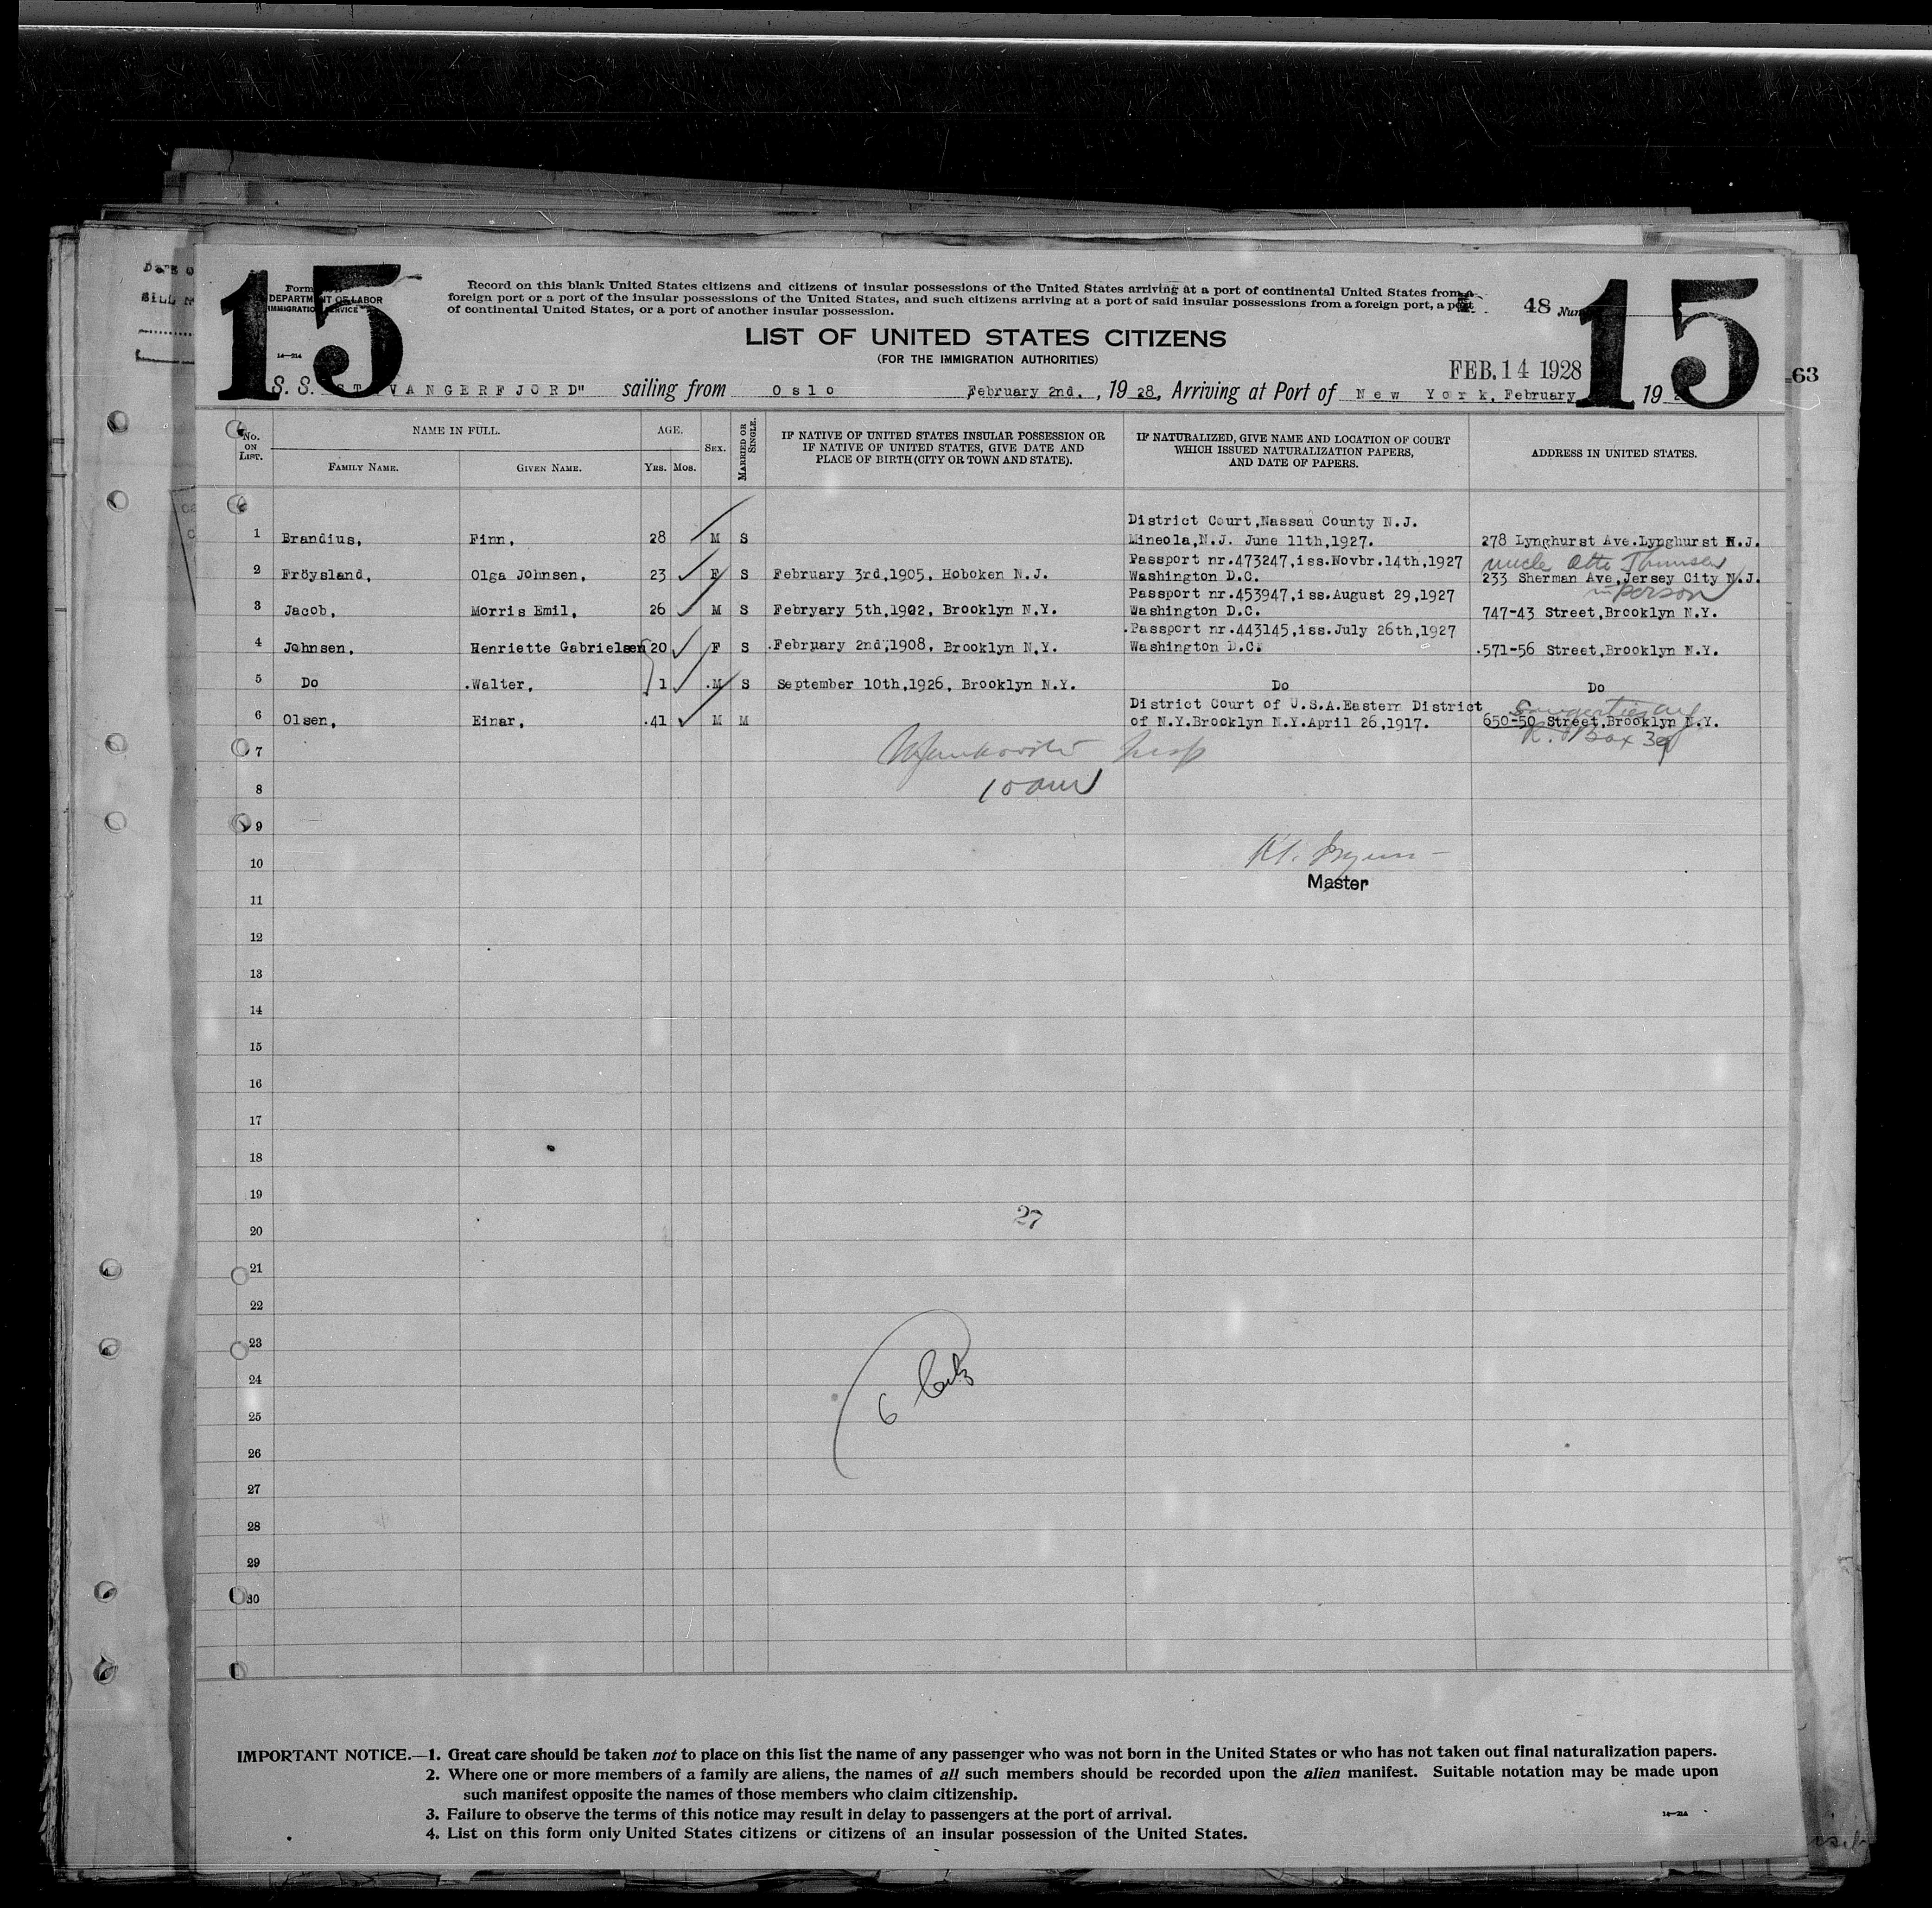 15
15
Form
DEPARTMENT OF LABOR
IMMIGRATION SERVICE
14—214
Record on this blank United States citizens and citizens of insular possessions of the United States arriving at a port of continental United States from a
foreign port or a port of the insular possessions of the United States, and such citizens arriving at a port of said insular possessions from a foreign port, a port
of continental United States, or a port of another insular possession.
48
LIST OF UNITED STATES CITIZENS
(FOR THE IMMIGRATION AUTHORITIES)
FEB. 14 1928
63
S. S. "STAVANGERFJORD" sailing from Oslo February 2nd., 1928, Arriving at Port of New York, February 19
No. ON LIST.
NAME IN FULL.
FAMILY NAME.
GIVEN NAME.
AGE.
YRS. MOS.
SEX.
MARRIED OR SINGLE.
IF NATIVE OF UNITED STATES INSULAR POSSESSION OR
IF NATIVE OF UNITED STATES, GIVE DATE AND
PLACE OF BIRTH (CITY OR TOWN AND STATE).
IF NATURALIZED, GIVE NAME AND LOCATION OF COURT
WHICH ISSUED NATURALIZATION PAPERS,
AND DATE OF PAPERS.
ADDRESS IN UNITED STATES.
District Court,Nassau County N.J.
1 Brandius, Finn, 28 M S Mineola,N.J. June 11th,1927. 278 Lynghurst Ave.Lynghurst N.J.
Passport nr.473247,iss.Novbr.14th,1927 uncle Otto
2 Fröysland, Olga Johnsen, 23 F S February 3rd,1905, Hoboken N.J. Washington D.C. 233 Sherman Ave,Jersey City N.J.
Passport nr.453947,iss.August 29,1927 in person
3 Jacob, Morris Emil, 26 M S Febryary 5th,1902, Brooklyn N.Y. Washington D.C. 747-43 Street,Brooklyn N.Y.
.Passport nr.443145,iss.July 26th,1927
4 Johnsen, Henriette Gabrielsen 20 F S .February 2nd,1908, Brooklyn N.Y. Washington D.C. .571-56 Street,Brooklyn N.Y.
5 Do .Walter, 1 .M S September 10th,1926, Brooklyn N.Y. Do Do
District Court of U.S.A.Eastern District
6 Olsen, Einar, .41 M M of N.Y.Brooklyn N.Y.April 26,1917. 650-50 Street,Brooklyn N.Y.
Box 39
7
8
9
10
Master
11
12
13
14
15
16
17
18
19
27
20
21
22
23
24
6
25
26
27
28
29
30
IMPORTANT NOTICE.—1. Great care should be taken not to place on this list the name of any passenger who was not born in the United States or who has not taken out final naturalization papers.
2. Where one or more members of a family are aliens, the names of all such members should be recorded upon the alien manifest. Suitable notation may be made upon
such manifest opposite the names of those members who claim citizenship.
3. Failure to observe the terms of this notice may result in delay to passengers at the port of arrival.
14—214
4. List on this form only United States citizens or citizens of an insular possession of the United States.